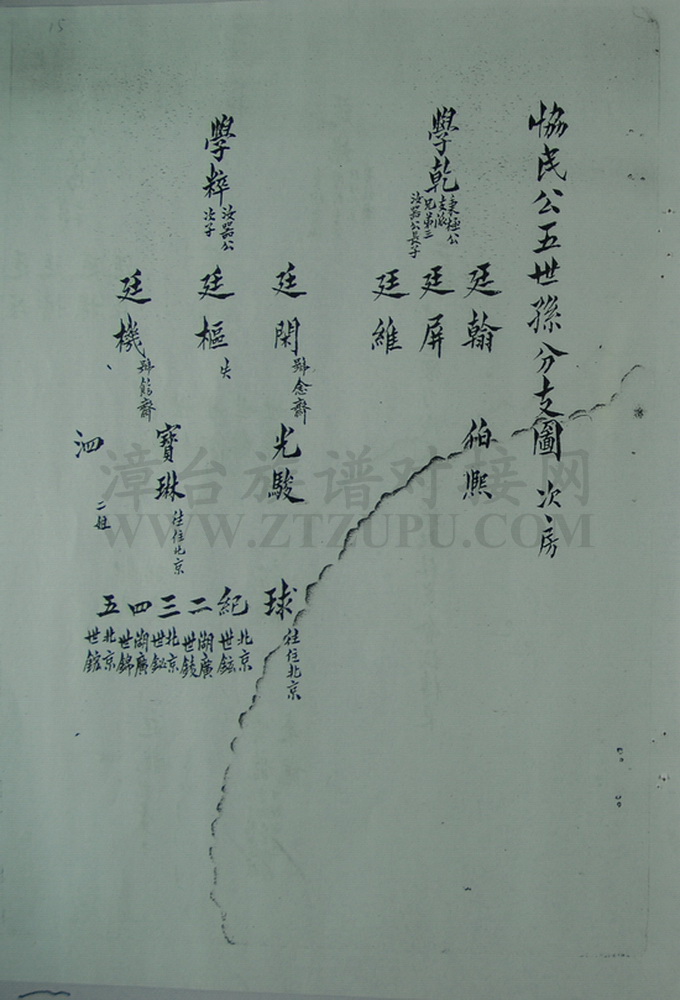 15
協民公五世孫分支圖 次房
學乾
秉極公
支派
兄弟三
汝器公長子
廷翰
廷屏
廷維
伯熙
學粹
汝器公
次子
廷閑
號念齋
廷樞
失
廷機
號餘齋
光駿
寶琳
往住北京
泗
二姓
球
往住北京
紀
二
三
四
五
北京
世鉉
湖廣
世錂
北京
世鉍
湖廣
世錦
北京
世錧
漳台族谱对接网
WWW.ZTZUPU.COM